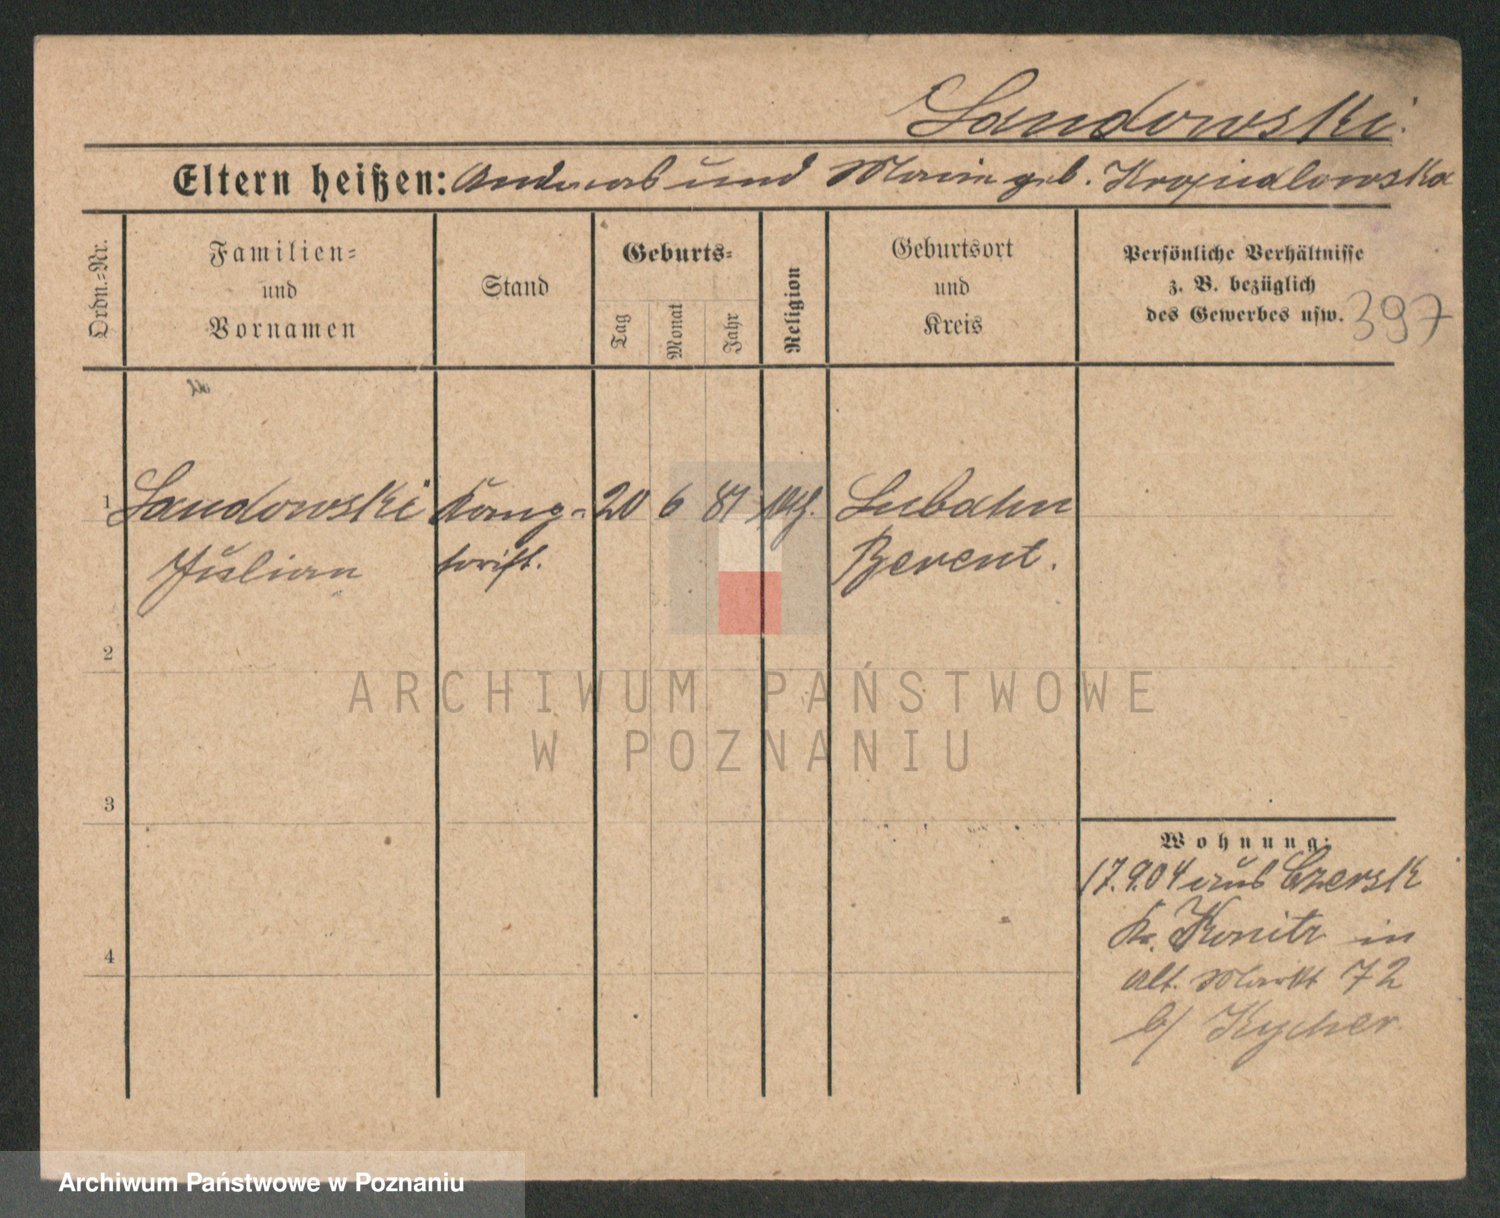 Landowski.
Eltern heißen: Andreas und Marie geb. Kropidlowska
Ordn.-Nr.
Familien-
und
Vornamen
Stand
Geburts-
Tag
Monat
Jahr
Religion
Geburtsort
und
Kreis
Persönliche Verhältnisse
z. B. bezüglich
des Gewerbes usw.
397
1
Landowski
Julian
20
6
81
kath.
Lubahn
Berent.
2
3
4
Wohnung:
17.9.04 aus Czersk
Kr. Konitz in
Alt. Markt 72
b/ Kycher
ARCHIWUM PAŃSTWOWE
W POZNANIU
Archiwum Państwowe w Poznaniu